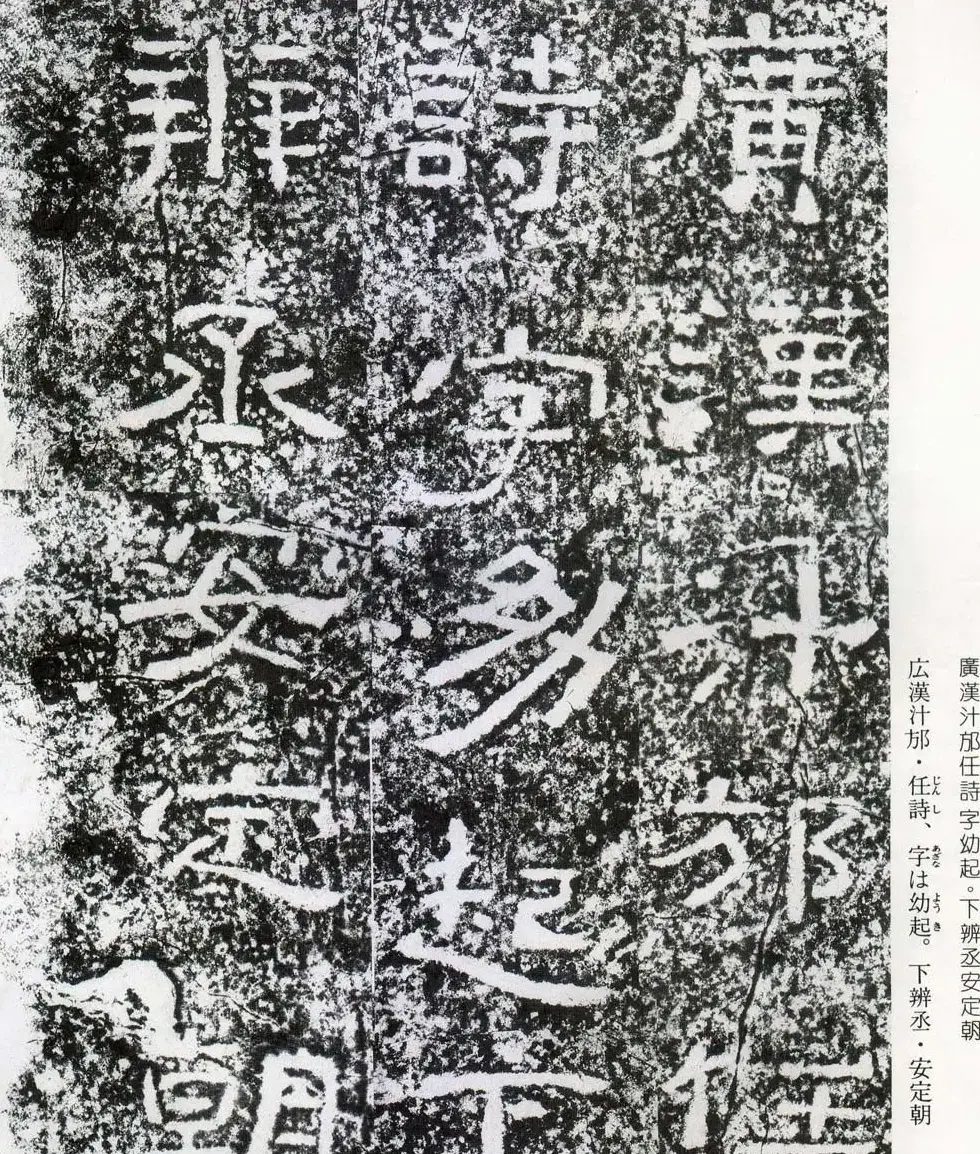 廣漢汁邡任詩字幼起。下辨丞安定朝
じんし あざな ようき
広漢汁邡・任詩、字は幼起。下辨丞・安定朝
廣漢汁邡任
詩字幼起下
辨丞安定朝